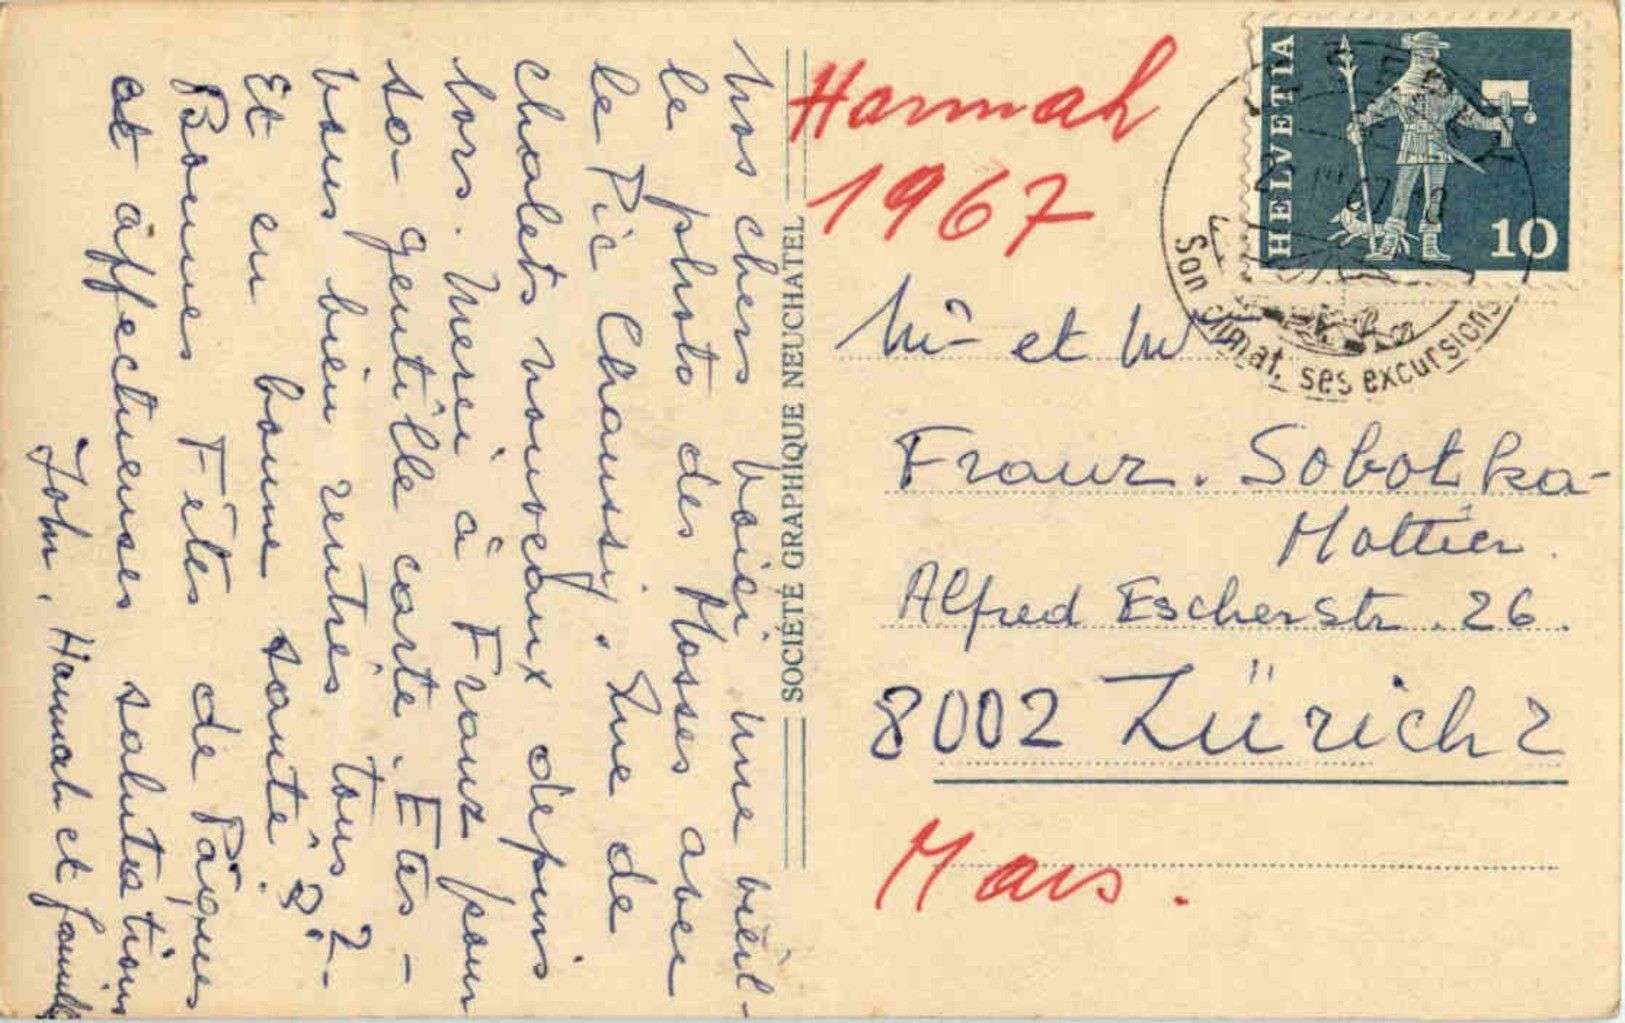 Mes chers voici une vieil-
le photo des Mosses avec
le Pic Chaussy. Que de
chalets nouveaux depuis
lors. Merci à Franz pour
sa gentille carte. Etes-
vous bien rentrés tous ?
Et en bonne santé ?
Bonnes Fêtes de Pâques
et affectueuses salutations
John, Hannah et famille
SOCIÉTÉ GRAPHIQUE NEUCHATEL
Hannah
1967
HELVETIA
10
67
Son climat, ses excursions
Mr et Me
Franz. Sobotka-
Mottier.
Alfred Escherstr. 26.
8002 Zürich 2
Mars.